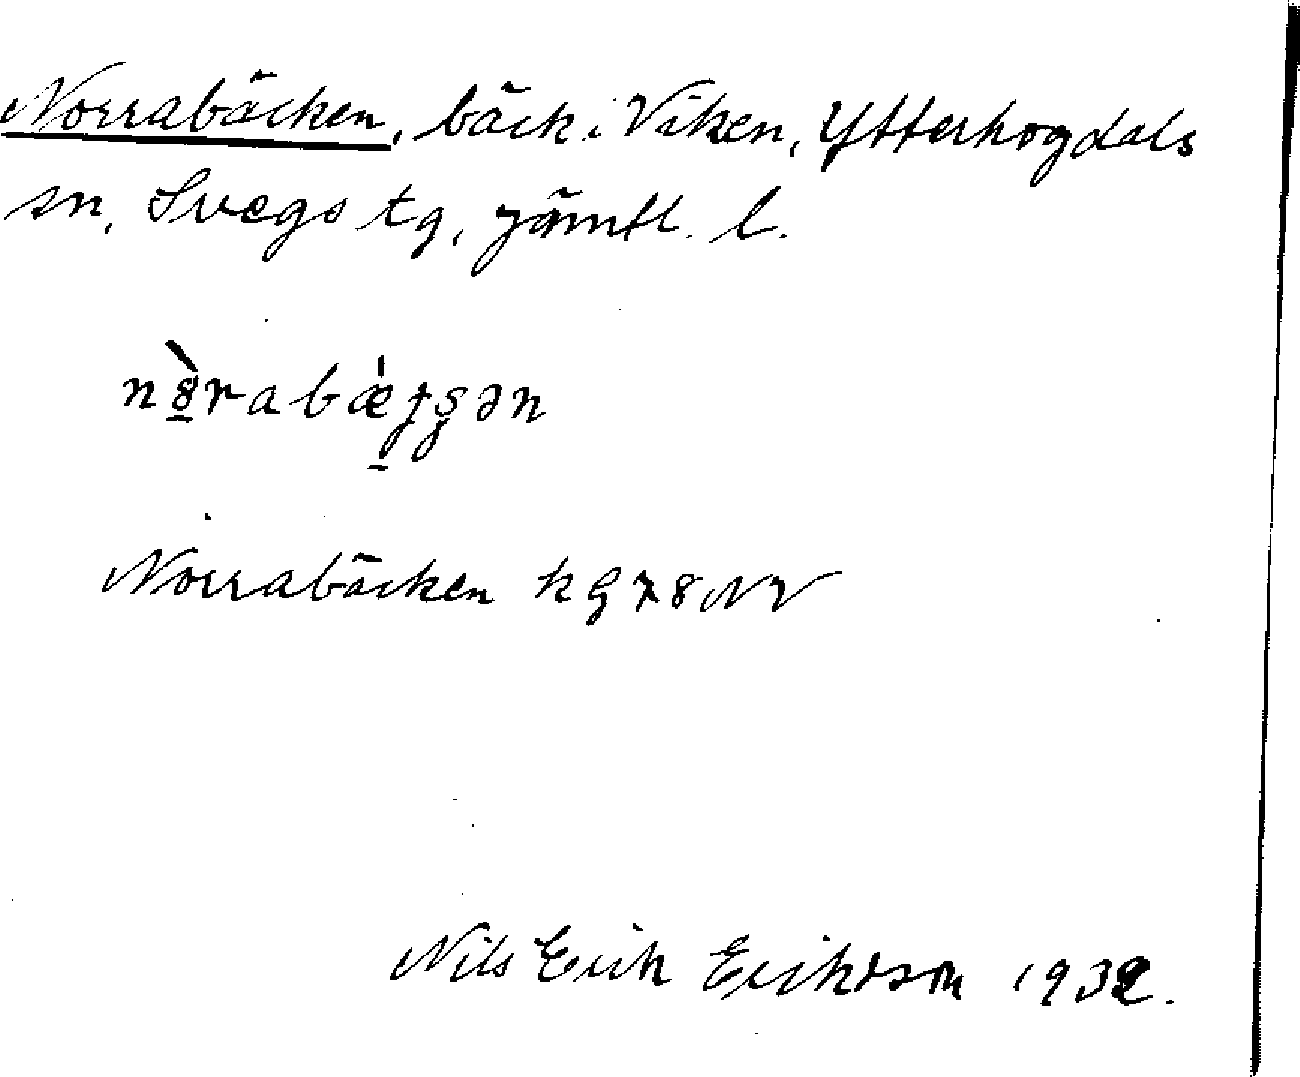 Norrabäcken, bäck i Viken, Ytterhogdals
sn, Svegs tg, Jämtl. l.
Norrabäcken k G 78 NV
Nils Erik Eriksson 1932.